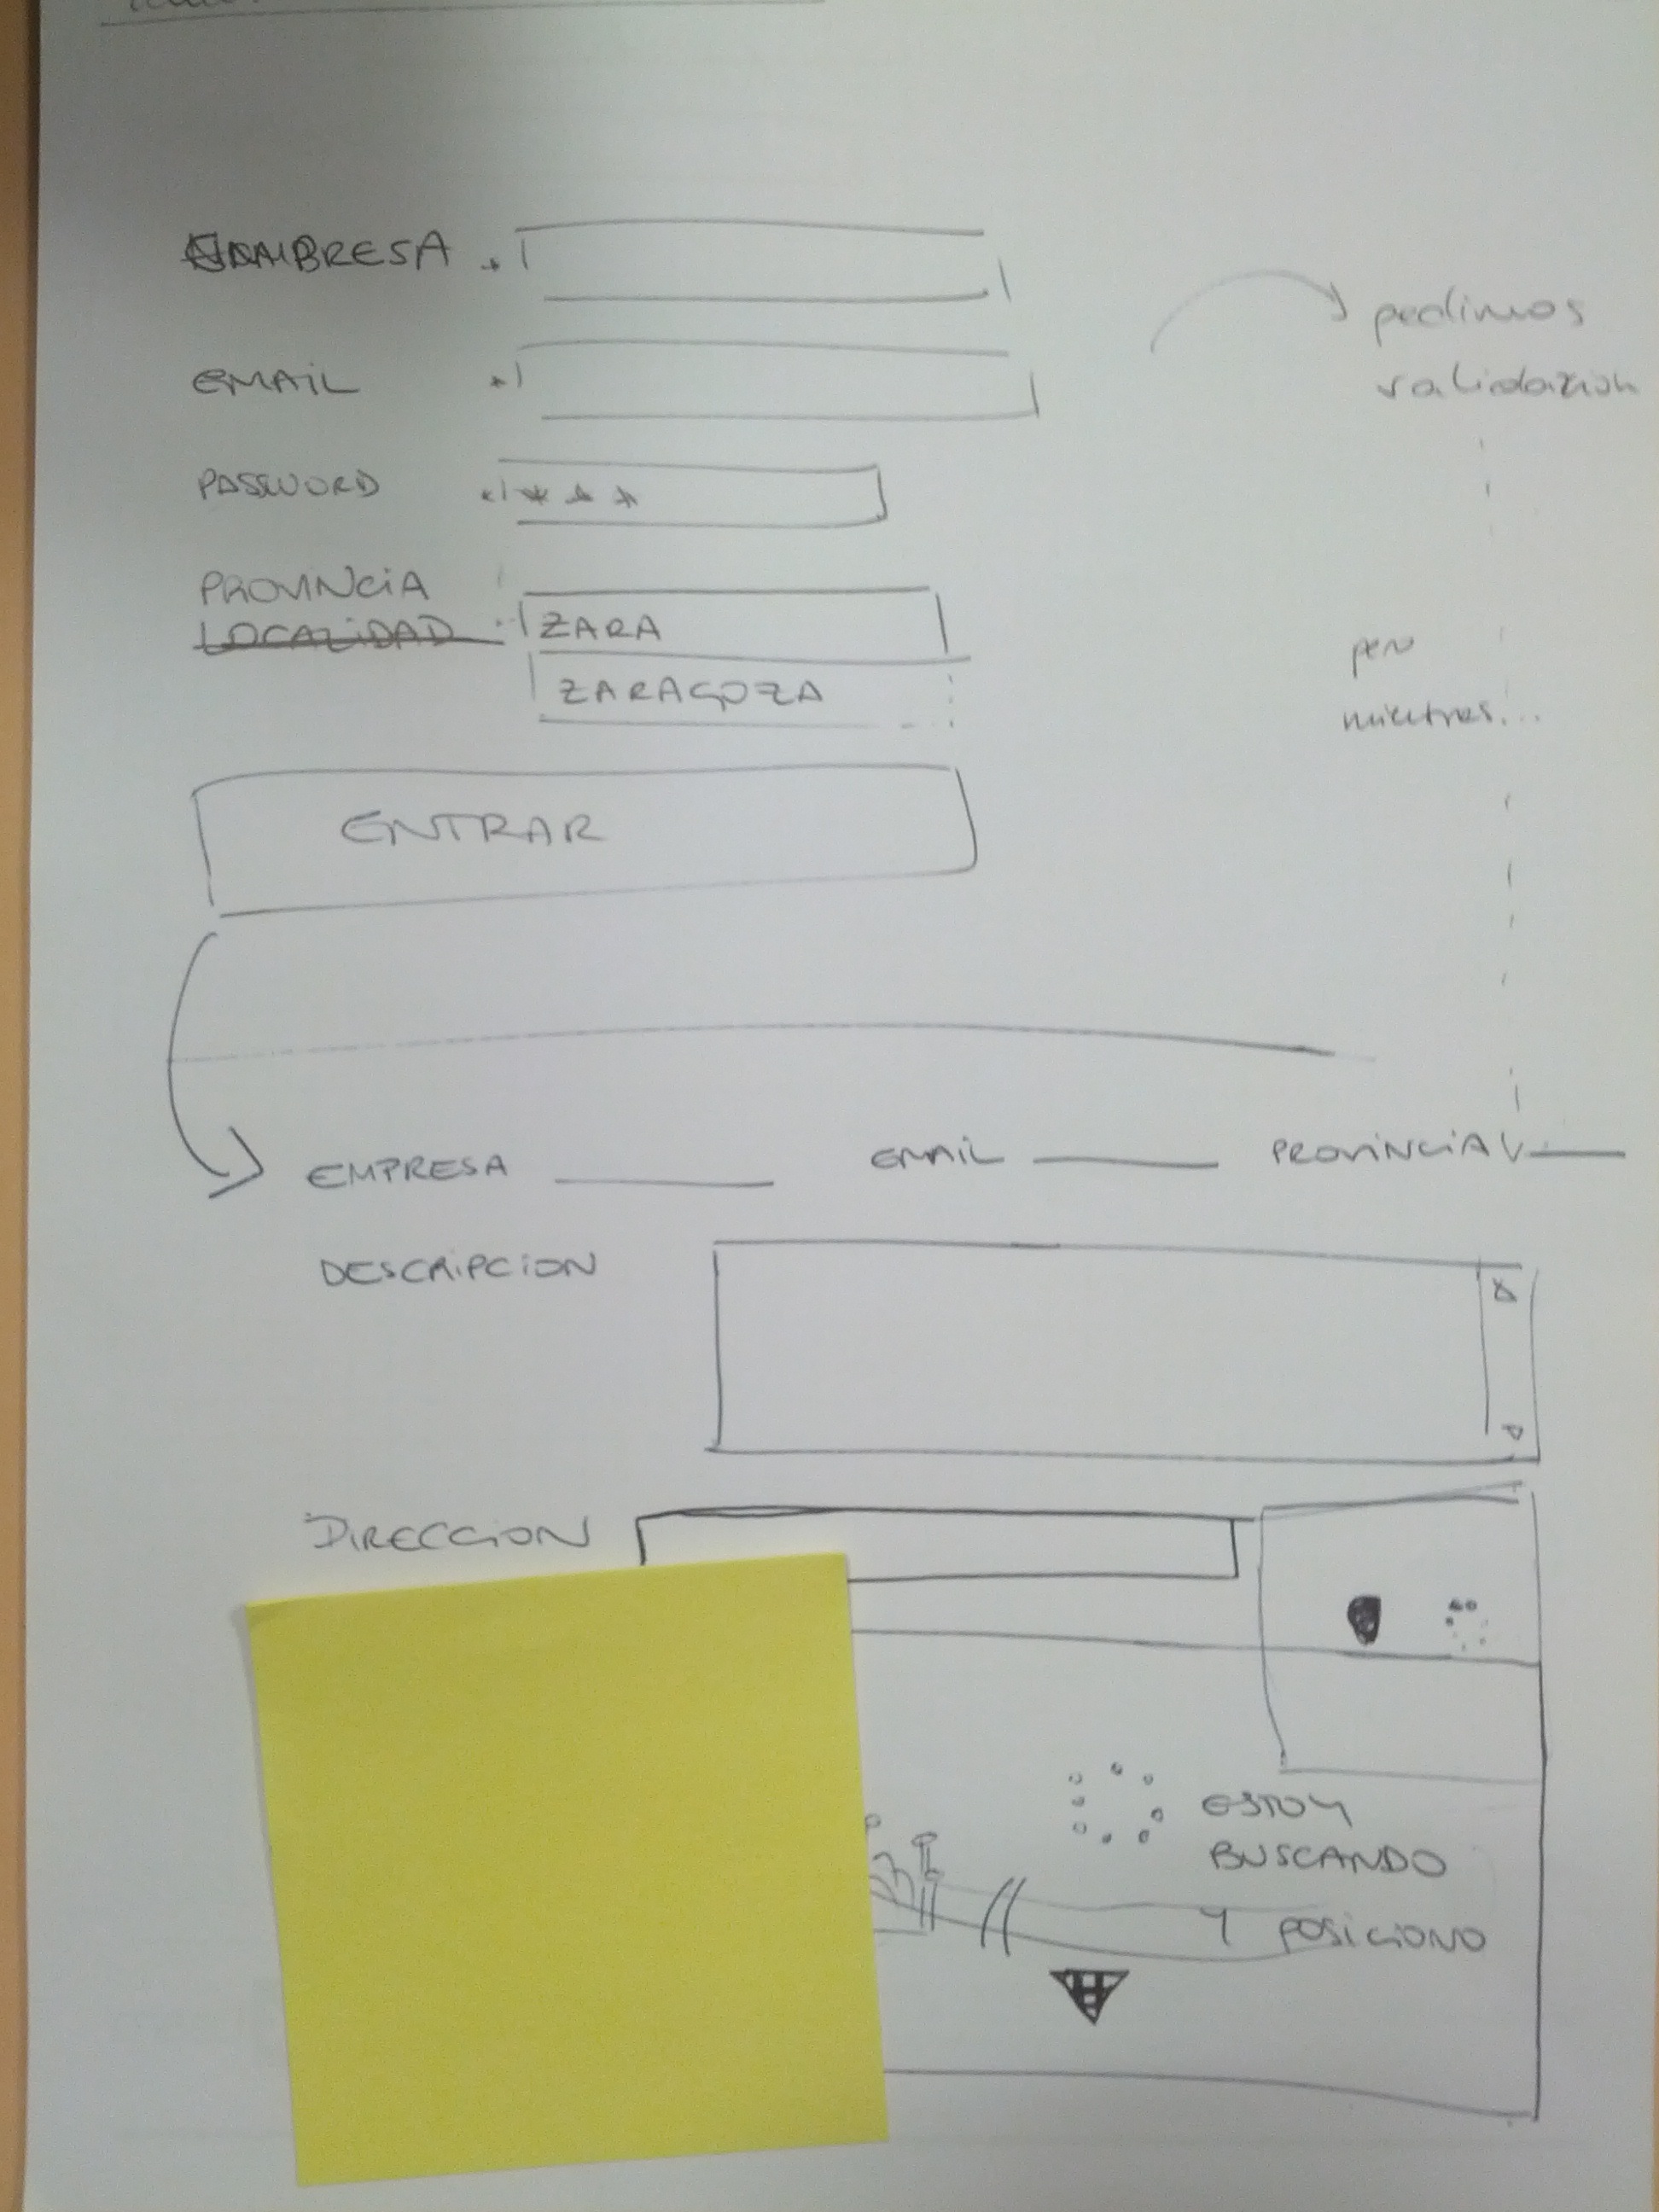 EMPRESA *
EMAIL *
PASSWORD * * * *
PROVINCIA
LOCALIDAD
ZARA
ZARAGOZA
ENTRAR
pedimos
validazion
pero
mientras...
EMPRESA EMAIL PROVINCIA
DESCRIPCION
DIRECCION
ESTOY
BUSCANDO
Y POSICIONO